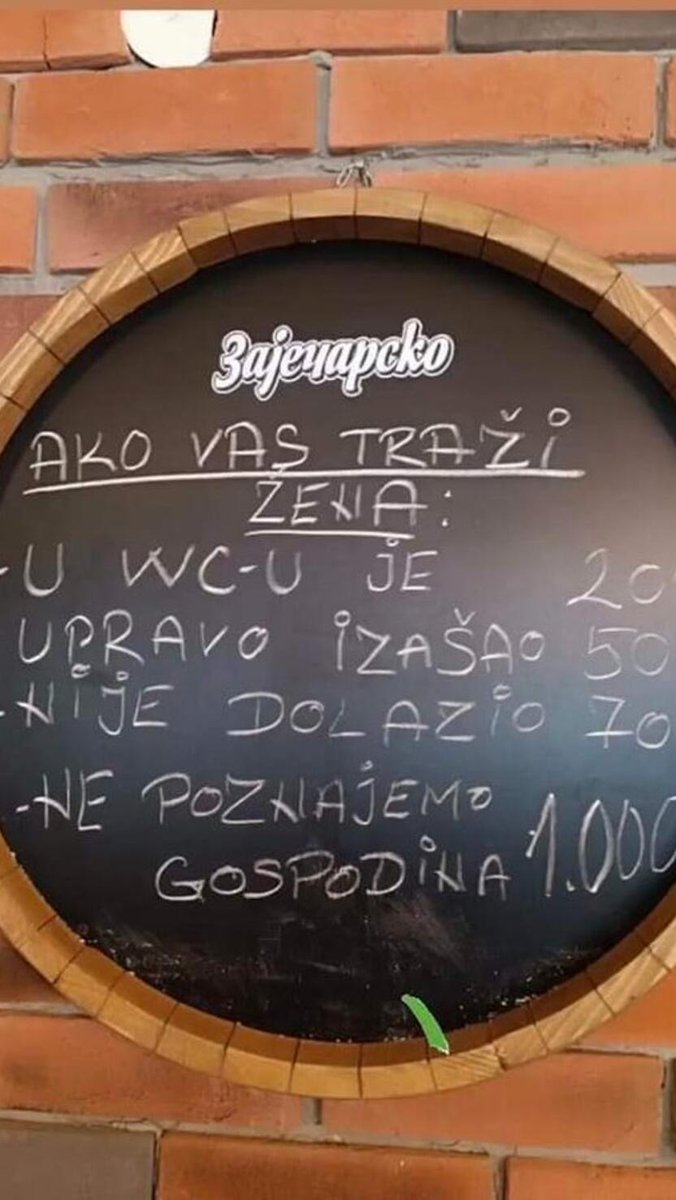 Зајечарско
AKO VAS TRAŽI
ŽENA:
-U WC-U JE 20
UPRAVO IZAŠAO 50
-NIJE DOLAZIO 70
-NE POZNAJEMO
GOSPODINA 1.000